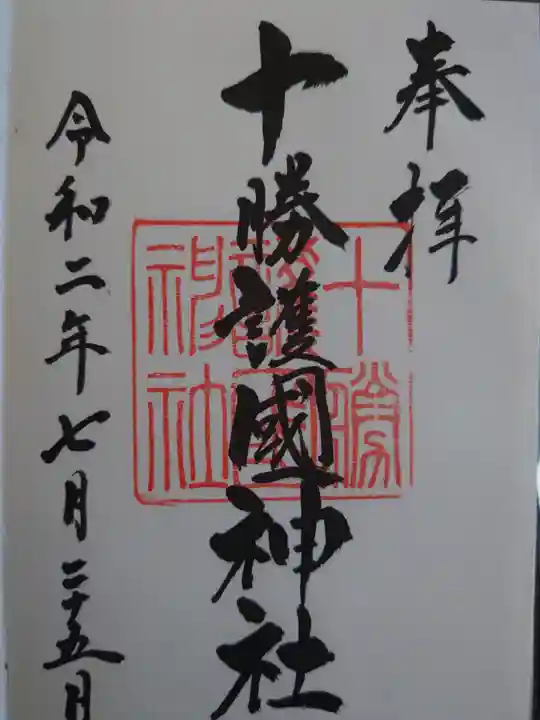 奉拝
十勝護國神社
十勝
護國
神社
令和二年七月二十五日